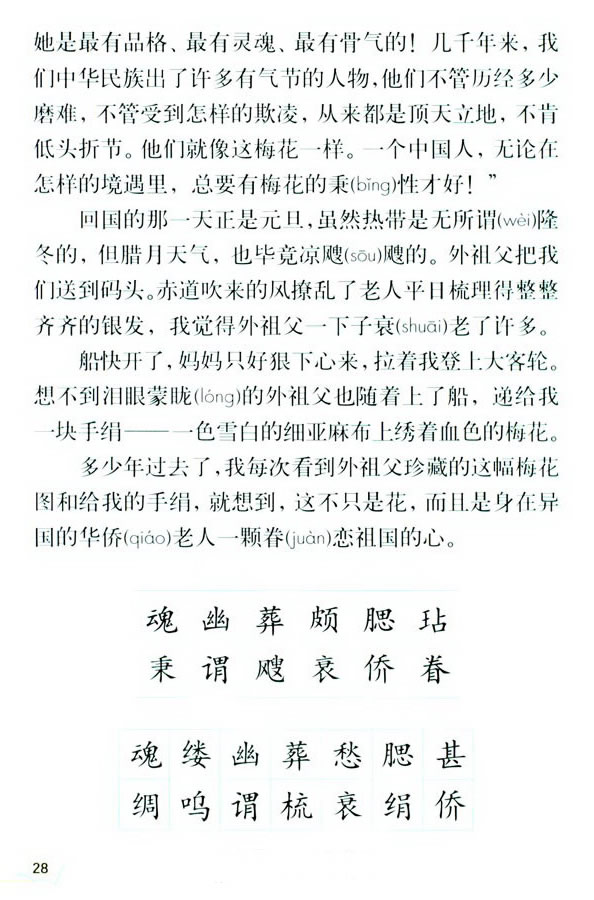 她是最有品格、最有灵魂、最有骨气的！几千年来，我
们中华民族出了许多有气节的人物，他们不管历经多少
磨难，不管受到怎样的欺凌，从来都是顶天立地，不肯
低头折节。他们就像这梅花一样。一个中国人，无论在
怎样的境遇里，总要有梅花的秉(bǐng)性才好！”
回国的那一天正是元旦，虽然热带是无所谓(wèi)隆
冬的，但腊月天气，也毕竟凉飕(sōu)飕的。外祖父把我
们送到码头。赤道吹来的风撩乱了老人平日梳理得整整
齐齐的银发，我觉得外祖父一下子衰(shuāi)老了许多。
船快开了，妈妈只好狠下心来，拉着我登上大客轮。
想不到泪眼蒙眬(lóng)的外祖父也随着上了船，递给我
一块手绢——一色雪白的细亚麻布上绣着血色的梅花。
多少年过去了，我每次看到外祖父珍藏的这幅梅花
图和给我的手绢，就想到，这不只是花，而且是身在异
国的华侨(qiáo)老人一颗眷(juàn)恋祖国的心。
魂 幽 葬 颇 腮 玷
秉 谓 飕 衰 侨 眷
魂 缕 幽 葬 愁 腮 甚
绸 呜 谓 梳 衰 绢 侨
28